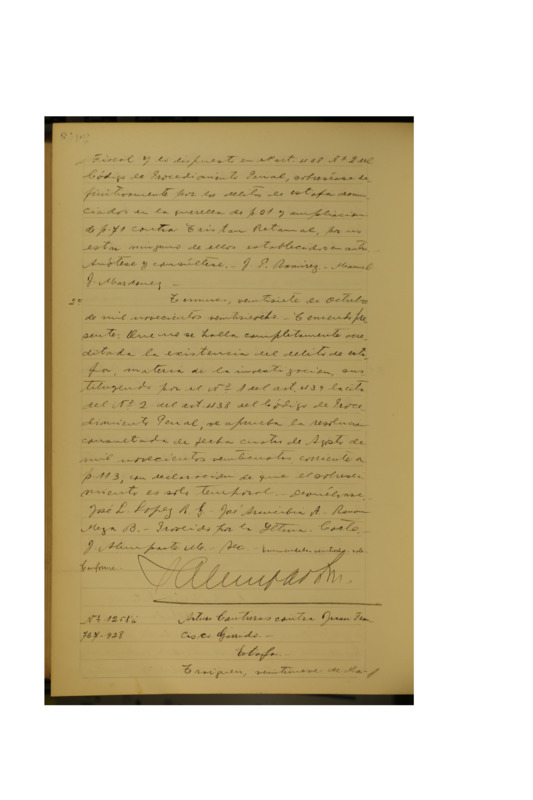 Fiscal y lo dispuesto en el art. 408 Nº 2 del
Código de Procedimiento Penal, sobreséase de
finitivamente por los delitos de estafa denun
ciados en la querella de f. 01 y ampliacion
de f. 40 contra Cristan Retamal, por no
estar ninguno de ellos establecido en autos.
Anótese y consúltese. - J. P. Ramirez. - Manuel
J. Mardones. -
2ª Temuco, veintisiete de Octubre
de mil novecientos veintiocho. - Teniendo pre
sente: Que no se halla completamente acre
ditada la existencia del delito de esta
fa, materia de la investigacion, sus
tituyendo por el Nº 1 del art. 439 la cita
del Nº 2 del art. 438 del Código de Proce
dimiento Penal, se aprueba la resolucion
consultada de fecha cuatro de Agosto de
mil novecientos veinticuatro corriente a
f. 113, con declaracion de que el sobresei
miento es solo temporal. - Devuélvase.
José L. Lopez R. G. - José A. - Ramon
Meza B. - Proveído por la Iltma. Corte. -
J. Alemparte M. Sec. -
Conforme.
Arturo Contreras contra Juan Fran
cisco Garrido. -
Estafa. -
Traiguen, veintinueve de Ma